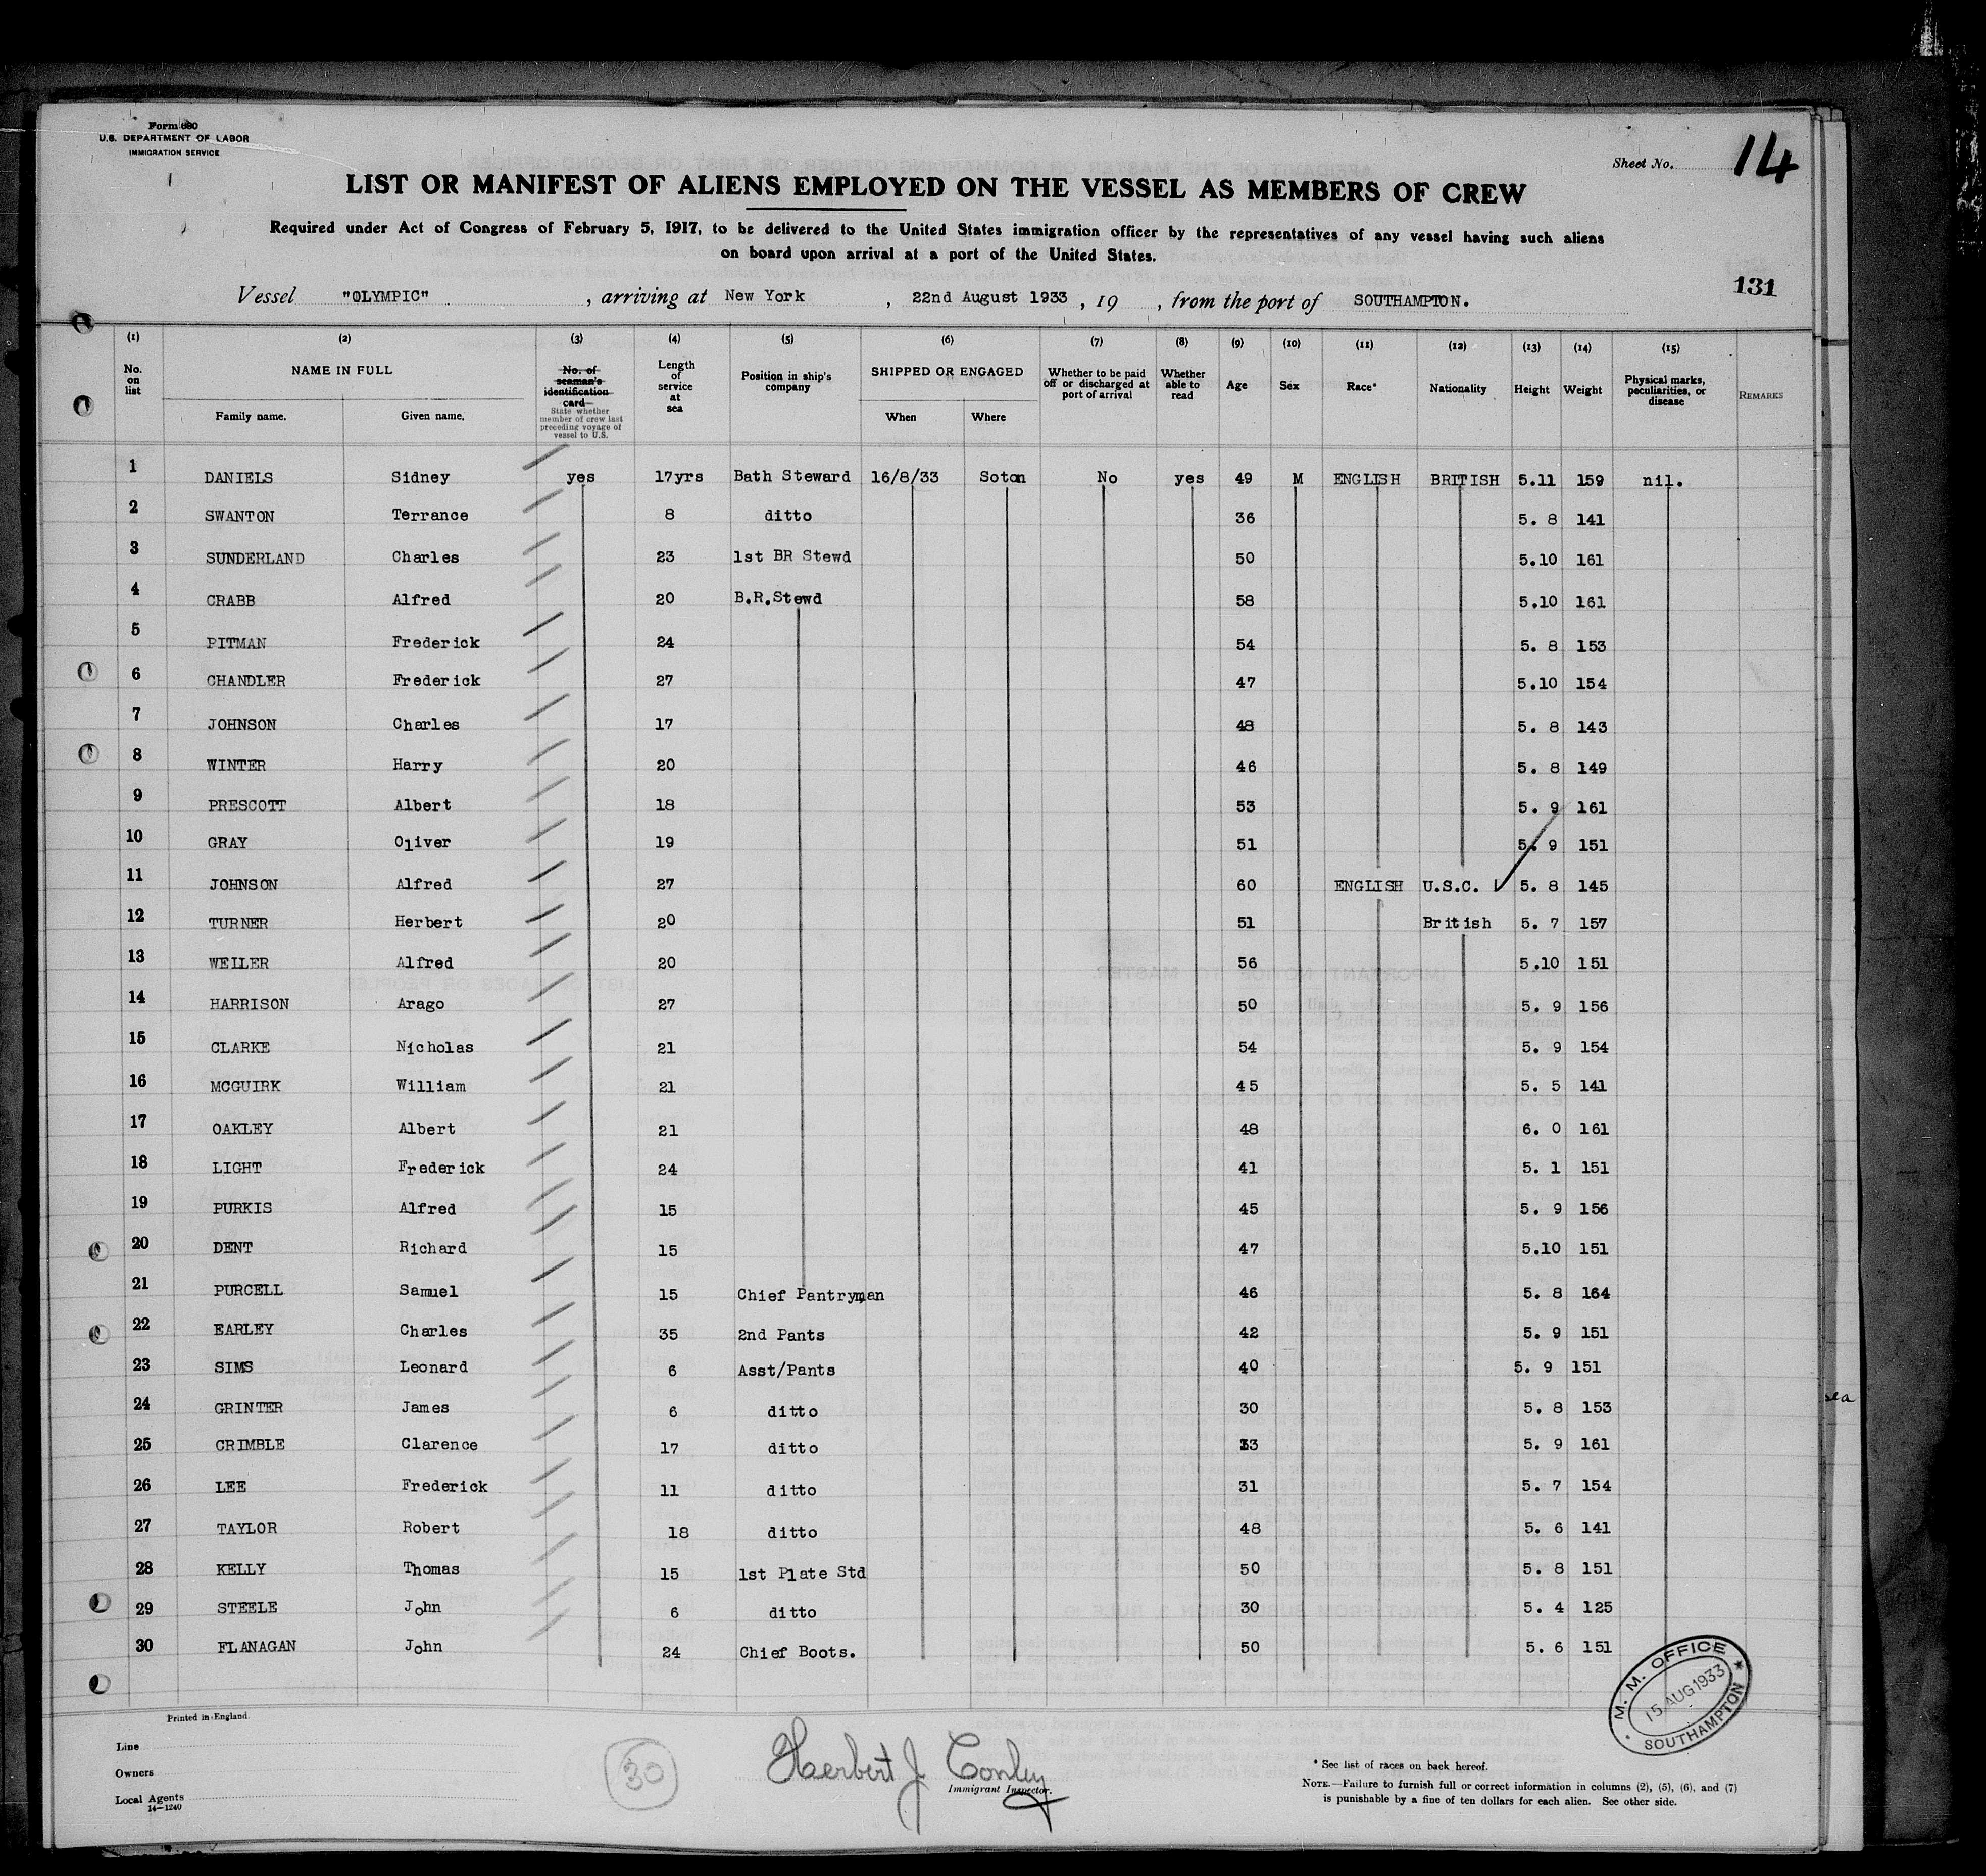 Form 680
U.S. DEPARTMENT OF LABOR
IMMIGRATION SERVICE
Sheet No. 14
LIST OR MANIFEST OF ALIENS EMPLOYED ON THE VESSEL AS MEMBERS OF CREW
Required under Act of Congress of February 5, 1917, to be delivered to the United States immigration officer by the representatives of any vessel having such aliens
on board upon arrival at a port of the United States.
131
Vessel "OLYMPIC" , arriving at New York , 22nd August 1933 , 19 , from the port of SOUTHAMPTON.
(1) (2) (3) (4) (5) (6) (7) (8) (9) (10) (11) (12) (13) (14) (15)
No. on list NAME IN FULL Family name. Given name. No. of seaman's identification card State whether member of crew last preceding voyage of vessel to U.S. Length of service at sea Position in ship's company SHIPPED OR ENGAGED When Where Whether to be paid off or discharged at port of arrival Whether able to read Age Sex Race* Nationality Height Weight Physical marks, peculiarities, or disease REMARKS
1 DANIELS Sidney yes 17yrs Bath Steward 16/8/33 Soton No yes 49 M ENGLISH BRITISH 5.11 159 nil.
2 SWANTON Terrance 8 ditto 36 5. 8 141
3 SUNDERLAND Charles 23 1st BR Stewd 50 5.10 161
4 CRABB Alfred 20 B.R.Stewd 58 5.10 161
5 PITMAN Frederick 24 54 5. 8 153
6 CHANDLER Frederick 27 47 5.10 154
7 JOHNSON Charles 17 48 5. 8 143
8 WINTER Harry 20 46 5. 8 149
9 PRESCOTT Albert 18 53 5. 9 161
10 GRAY Oliver 19 51 5. 9 151
11 JOHNSON Alfred 27 60 ENGLISH U.S.C. 5. 8 145
12 TURNER Herbert 20 51 British 5. 7 157
13 WEILER Alfred 20 56 5.10 151
14 HARRISON Arago 27 50 5. 9 156
15 CLARKE Nicholas 21 54 5. 9 154
16 MCGUIRK William 21 45 5. 5 141
17 OAKLEY Albert 21 48 6. 0 161
18 LIGHT Frederick 24 41 5. 1 151
19 PURKIS Alfred 15 45 5. 9 156
20 DENT Richard 15 47 5.10 151
21 PURCELL Samuel 15 Chief Pantryman 46 5. 8 164
22 EARLEY Charles 35 2nd Pants 42 5. 9 151
23 SIMS Leonard 6 Asst/Pants 40 5. 9 151
24 GRINTER James 6 ditto 30 5. 8 153
25 CRIMBLE Clarence 17 ditto 33 5. 9 161
26 LEE Frederick 11 ditto 31 5. 7 154
27 TAYLOR Robert 18 ditto 48 5. 6 141
28 KELLY Thomas 15 1st Plate Std 50 5. 8 151
29 STEELE John 6 ditto 30 5. 4 125
30 FLANAGAN John 24 Chief Boots. 50 5. 6 151
M. M. OFFICE
15 AUG 1933
SOUTHAMPTON
Printed in England.
Line
Owners
Local Agents
14—1240
30
Herbert J Conley
Immigrant Inspector.
* See list of races on back hereof.
NOTE.—Failure to furnish full or correct information in columns (2), (5), (6), and (7)
is punishable by a fine of ten dollars for each alien. See other side.